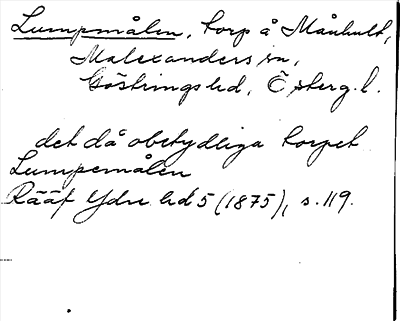 Lumpmålen, torp å Månhult,
Malexanders sn,
Göstrings hd, Österg. l.
det då obetydliga torpet
Lumpemålen
Rääf Ydre hd 5 (1875), s. 119.